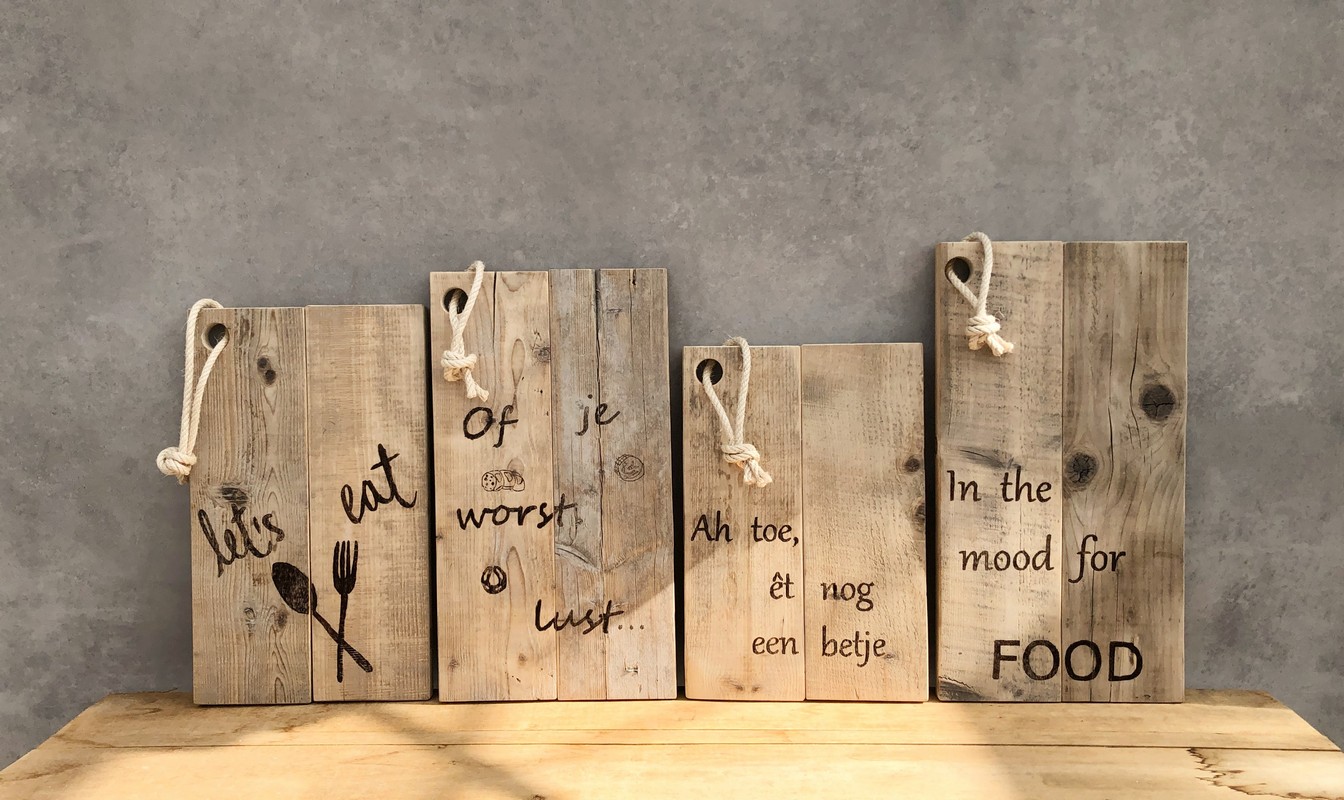 let's eat
Of je
worst
lust...
Ah toe,
êt nog
een betje
In the
mood for
FOOD